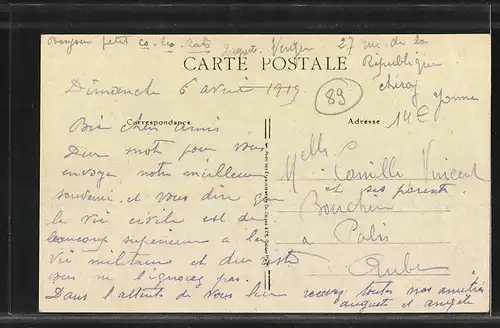 Bonjour petit co-les-rats
Auguste Verger 27 rue de la
République
Chéroy Yonne
CARTE POSTALE
Dimanche 6 avril 1919
89
14E
Correspondance
Adresse
Bien chers amis
Un mot pour vous
envoyer notre meilleur
souvenir et vous dire que
la vie civile est de
beaucoup supérieure à la
vie militaire et du reste
vous ne l'ignorez pas.
Dans l'attente de vous lire recevez toutes nos amitiés
auguste et angèle
Melle
Camille Vincent
et ses parents
Boucher
a Palis
Aube